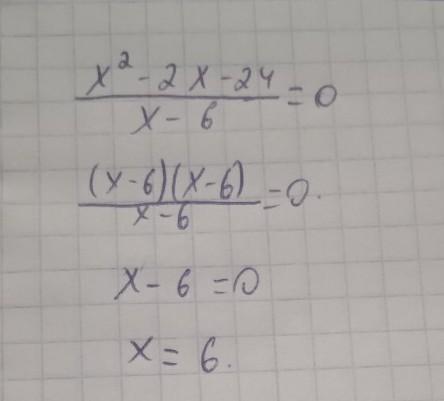 x² - 2x - 24 / x - 6 = 0
(x-6)(x-6) / x-6 = 0.
x - 6 = 0
x = 6.